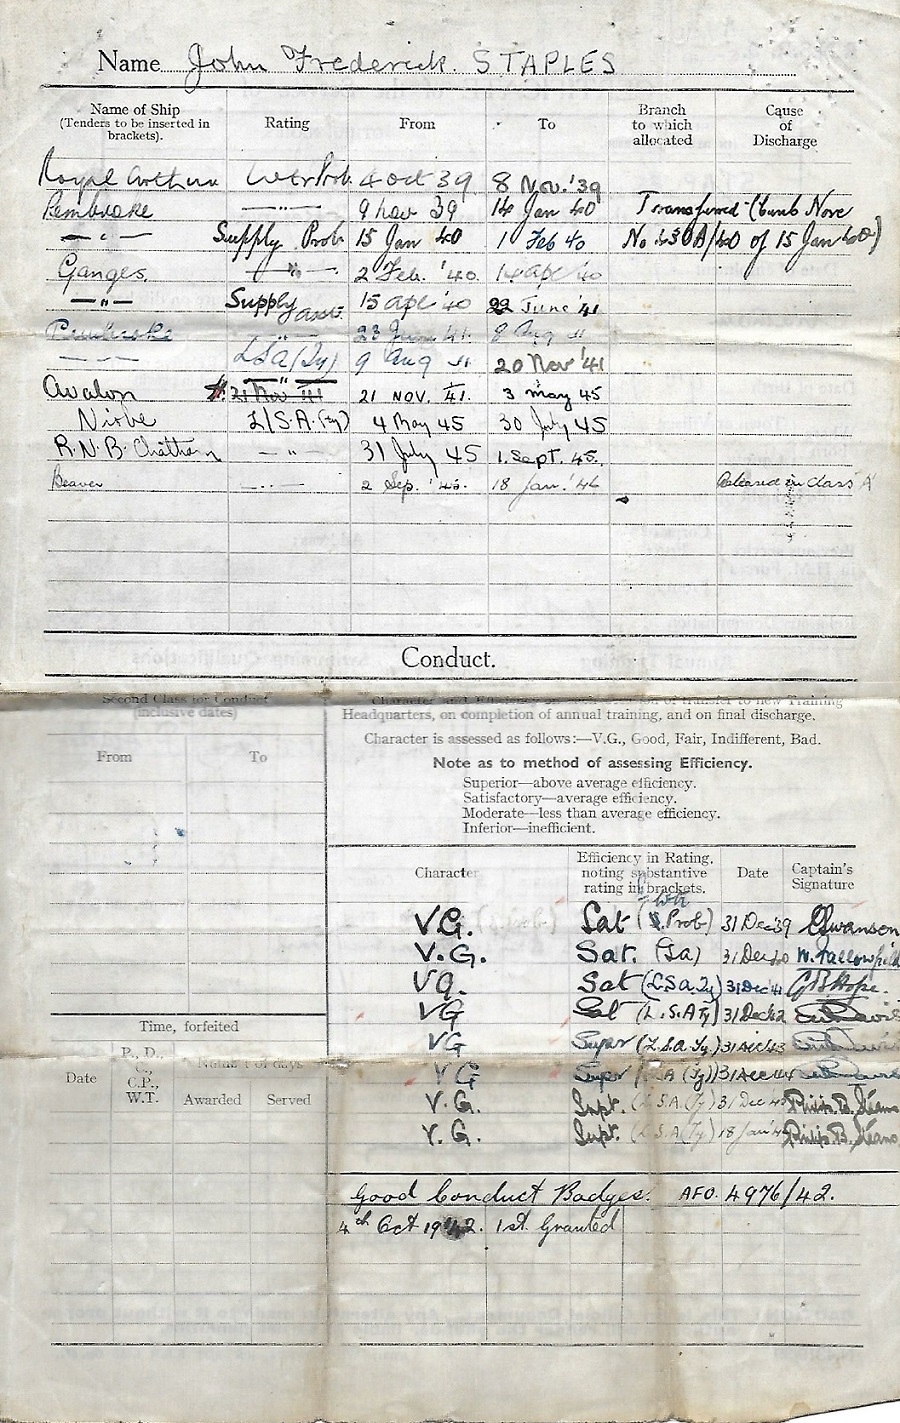 Name John Frederick STAPLES
Name of Ship (Tenders to be inserted in brackets). Rating From To Branch to which allocated Cause of Discharge
Royal Arthur Wtr Prob. 4 Oct 39 8 Nov. '39
Pembroke —"— 9 Nov 39 14 Jan 40 Transferred (Camb Nore
—"— Supply Prob 15 Jan 40 1 Feb 40 No 430A/40 of 15 Jan 40)
Ganges. —"— 2 Feb. '40. 14 Apl '40
—"— Supply Asst. 15 Apl '40 22 June '41
Pembroke —"— 23 June 41. 8 Aug 41
—"— LSA (Ty) 9 Aug 41 20 Nov '41
Avalon —"— 21 NOV. 41. 3 May 45
L/S.A.(Ty) 4 May 45 30 July 45
R.N.B. Chatham —"— 31 July 45 1. Sept. 45.
Beaver —"— 2 Sep. '45. 18 Jan. '46 Released in Class 'A'
Conduct.
Second Class for Conduct (inclusive dates)
From To
Character and Efficiency on transfer to new Training Headquarters, on completion of annual training, and on final discharge.
Character is assessed as follows:—V.G., Good, Fair, Indifferent, Bad.
Note as to method of assessing Efficiency.
Superior—above average efficiency.
Satisfactory—average efficiency.
Moderate—less than average efficiency.
Inferior—inefficient.
Character Efficiency in Rating, noting substantive rating in brackets. Date Captain's Signature
V.G. Sat (Wtr Prob) 31 Dec 39 Swanson
V.G. Sat. (SA) 31 Dec 40 W. Fallowfield
VG. Sat (LSA Ty) 31 Dec 41 Hope.
VG Sat (L.S.A Ty) 31 Dec 42
VG Super (L.S.A. Ty.) 31 Dec 43
VG Super (LSA (Ty)) 31 Dec 44
V.G. Supr. (L.S.A.(Ty) 31 Dec 45 Philip B. Stearns
V.G. Supr. (L.S.A.(Ty) 18 Jan 46 Philip B. Stearns
Time, forfeited
Date P., D., C., C.P., W.T. Number of days
Awarded Served
Good Conduct Badges. AFO. 4976/42.
4th Oct 1942. 1st. Granted